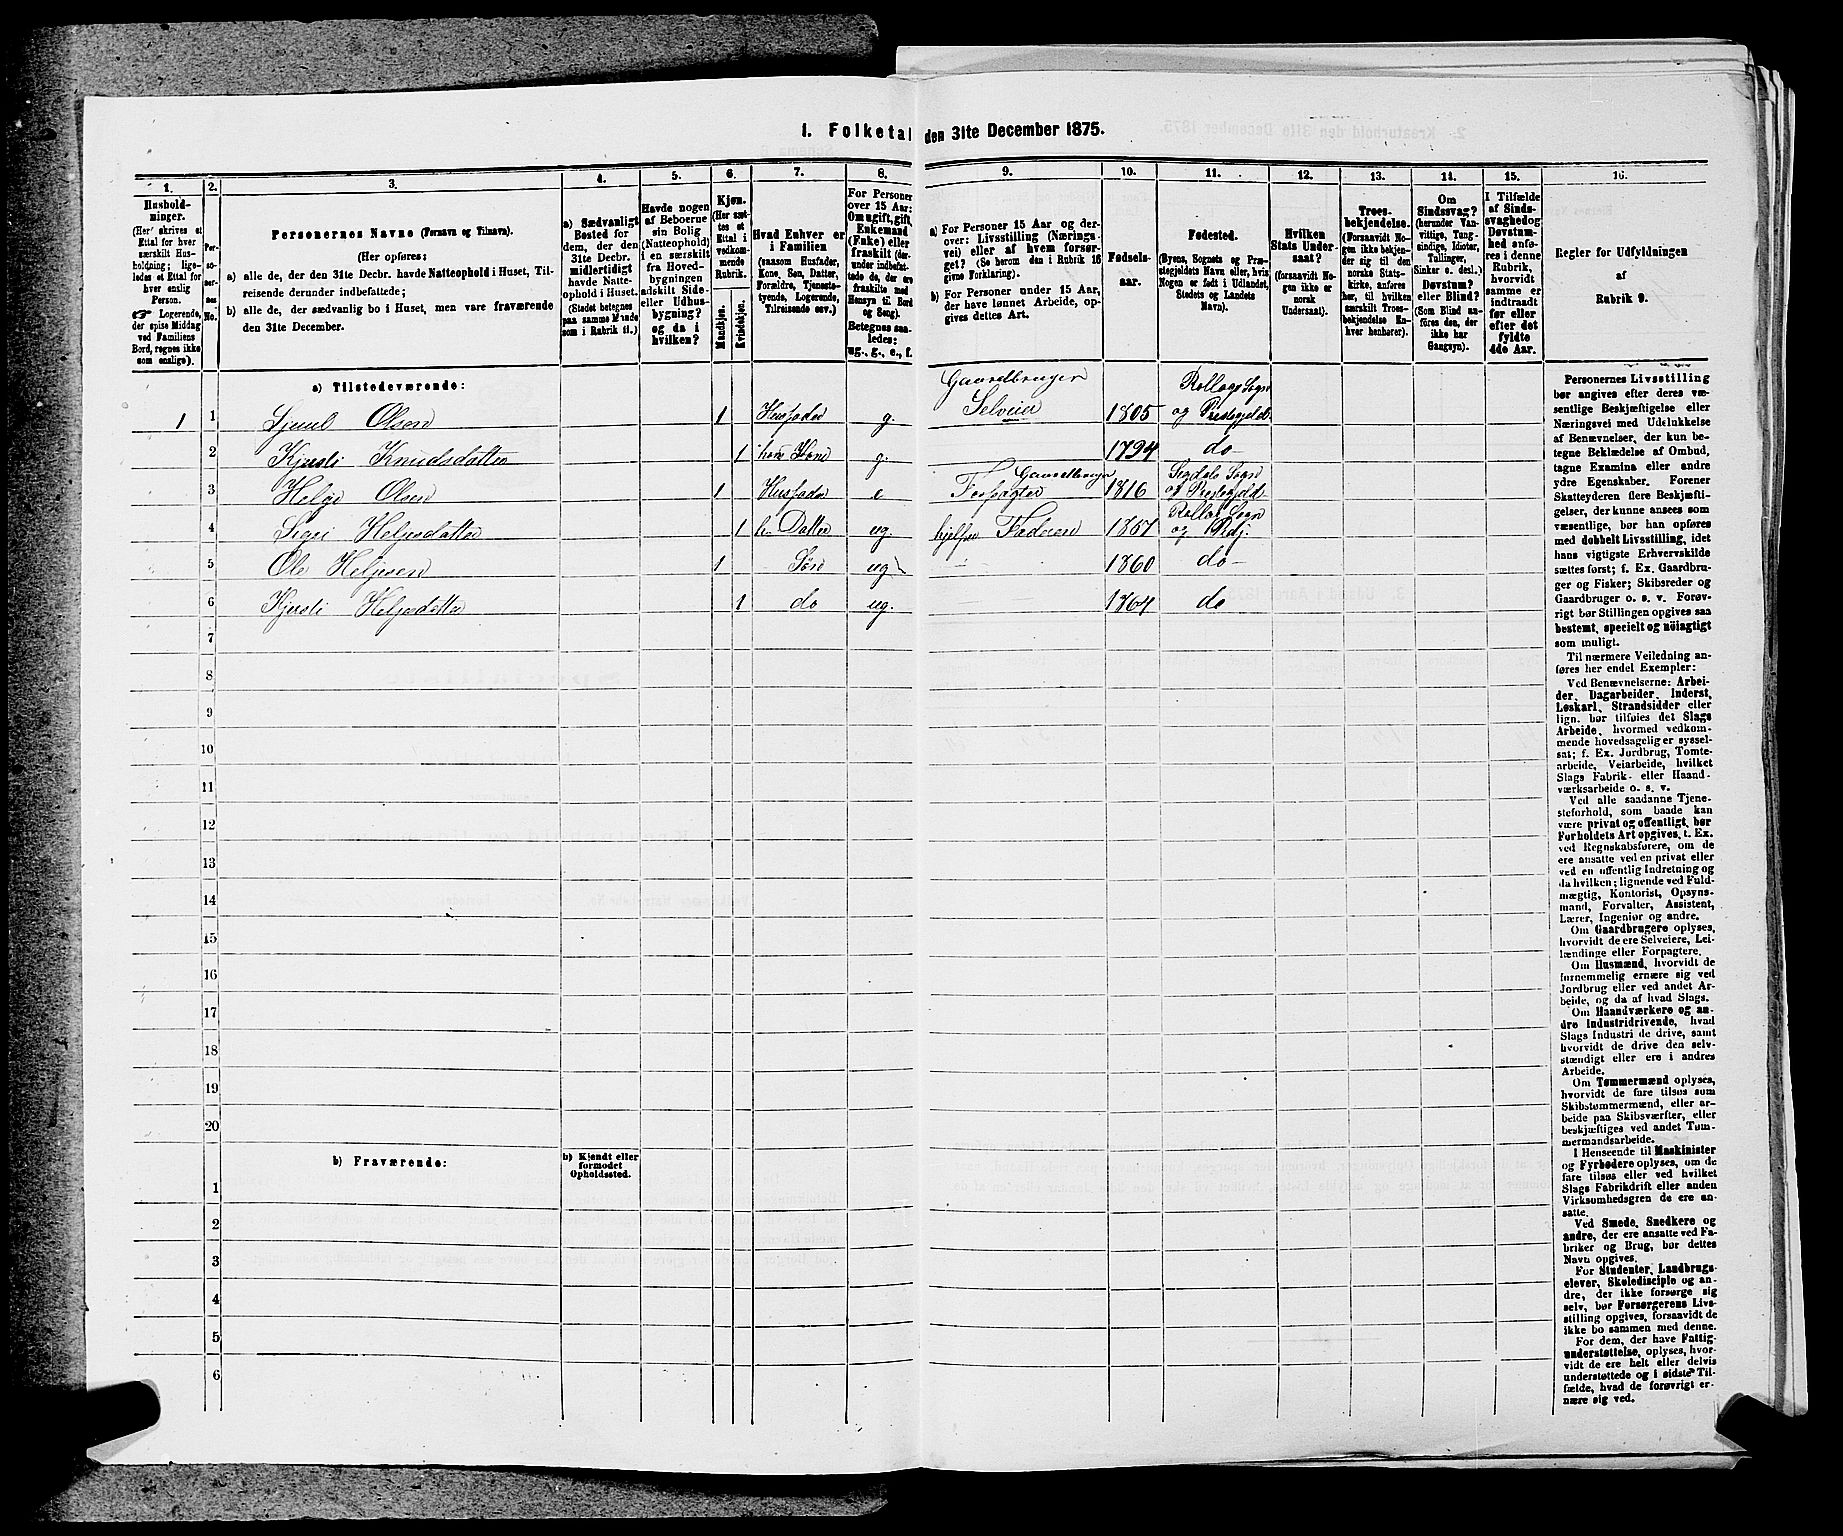 1. Folketal den 31te December 1875.
1. 2. 3. 4. 5. 6. 7. 8. 9. 10. 11. 12. 13. 14. 15. 16.
Hushold-
ninger.
(Her skrives et
Ettal for hver
særskilt Hus-
holdning; lige-
ledes et Ettal for
hver enslig
Person.
☞ Logerende,
der spise Middag
ved Familiens
Bord, regnes ikke
som enslige).
Per-
so-
ner-
nes
No.
Personernes Navne (Fornavn og Tilnavn).
(Her opføres:
a) alle de, der den 31te Decbr. havde Natteophold i Huset, Til-
reisende derunder indbefattede;
b) alle de, der sædvanlig bo i Huset, men vare fraværende
den 31te December.
a) Sædvanligt
Bosted for
dem, der den
31te Decbr.
midlertidigt
havde Natte-
ophold i Huset.
(Stedet betegnes
paa samme Maade
som i Rubrik 11.)
Havde nogen
af Beboerne
sin Bolig
(Natteophold)
i en særskilt
fra Hoved-
bygningen
adskilt Side-
eller Udhus-
bygning?
og da i
hvilken?
Kjøn.
(Her sæt-
tes et
Ettal i
vedkom-
mende
Rubrik.
Mandkjøn.
Kvindekjøn.
Hvad Enhver er
i Familien
(saasom Husfader,
Kone, Søn, Datter,
Forældre, Tjeneste-
tyende, Logerende,
Tilreisende osv.)
For Personer
over 15 Aar:
Om ugift, gift,
Enkemand
(Enke) eller
fraskilt (der-
under indbefat-
tede de, der ere
fraskilte med
Hensyn til Bord
og Seng).
Betegnes saa-
ledes:
ug., g., e., f.
a) For Personer 15 Aar og der-
over: Livsstilling (Nærings-
vei) eller af hvem forsør-
get? (Se herom den i Rubrik 16
givne Forklaring).
b) For Personer under 15 Aar,
der have lønnet Arbeide, op-
gives dettes Art.
Fødsels-
aar.
Fødested.
(Byens, Sognets og Præ-
stegjeldets Navn eller, hvis
Nogen er født i Udlandet,
Stedets og Landets
Navn).
Hvilken
Stats Under-
saat?
(forsaavidt No-
gen ikke er
norsk
Undersaat).
Troes-
bekjendelse.
(Forsaavidt No-
gen ikke bekjen-
der sig til den
norske Stats-
kirke, anføres
her, til hvilken
særskilt Troes-
bekjendelse En-
hver henhører).
Om
Sindssvag?
(herunder Van-
vittige, Tung-
sindige, Idioter,
Tullinger,
Sinker o. desl.)
Døvstum?
eller Blind?
(Som Blind an-
føres den, der
ikke har
Gangsyn).
I Tilfælde
af Sinds-
svaghed og
Døvstum-
hed anfø-
res i denne
Rubrik,
hvorvidt
samme er
indtraadt
før eller
efter det
fyldte
4de Aar.
Regler for Udfyldningen
af
Rubrik 9.
a) Tilstedeværende:
1 1 Olsen 1 Husfader g. Gaardbruger Selveier 1805 Rollags Sogn og Prestegjeld
2 Kjersti Knudsdatter 1 hans Kone g. 1794 do
3 Helge Olsen 1 Husfader e Gaardbruger Forpagter 1816 Sigdals Sogn og Prestegjeld
4 Sigri Helgesdatter 1 h. Datter ug. hjelper Faderen 1857 Rollags Sogn og Pldj.
5 Ole Helgesen 1 Søn ug 1860 do
6 Kjersti Helgesdatter 1 do ug. 1864 do
7
8
9
10
11
12
13
14
15
16
17
18
19
20
b) Fraværende:
b) Kjendt eller
formodet
Opholdssted.
1
2
3
4
5
6
Personernes Livsstilling
bør angives efter deres væ-
sentlige Beskjæftigelse eller
Næringsvei med Udelukkelse
af Benævnelser, der kun be-
tegne Beklædelse af Ombud,
tagne Examina eller andre
ydre Egenskaber. Forener
Skatteyderen flere Beskjæfti-
gelser, der kunne ansees som
væsentlige, bør han opføres
med dobbelt Livsstilling, idet
hans vigtigste Erhvervskilde
sættes først; f. Ex. Gaardbru-
ger og Fisker; Skibsreder og
Gaardbruger o. s. v. Forøv-
rigt bør Stillingen opgives saa
bestemt, specielt og nöiagtigt
som muligt.
Til nærmere Veiledning an-
føres her endel Exempler:
Ved Benævnelserne: Arbei-
der, Dagarbeider, Inderst,
Løskarl, Strandsidder eller
lign. bør tilføies det Slags
Arbeide, hvormed vedkom-
mende hovedsagelig er syssel-
sat; f. Ex. Jordbrug, Tomte-
arbeide, Veiarbeide, hvilket
Slags Fabrik- eller Haand-
værksarbeide o. s. v.
Ved alle saadanne Tjene-
steforhold, som baade kan
være privat og offentligt, bør
Forholdets Art opgives, t. Ex.
ved Regnskabsførere, om de
ere ansatte ved en privat eller
ved en offentlig Indretning og
da hvilken; lignende ved Fuld-
mægtig, Kontorist, Opsyns-
mand, Forvalter, Assistent,
Lærer, Ingeniør og andre.
Om Gaardbrugere oplyses,
hvorvidt de ere Selveiere, Lei-
lændinge eller Forpagtere.
Om Husmænd, hvorvidt de
fornemmelig ernære sig ved
Jordbrug eller ved andet Ar-
beide, og da af hvad Slags.
Om Haandværkere og an-
dre Industridrivende, hvad
Slags Industri de drive, samt
hvorvidt de drive den selv-
stændigt eller ere i andres
Arbeide.
Om Tømmermænd oplyses,
hvorvidt de fare tilsøs som
Skibstømmermænd, eller ar-
beide paa Skibsværfter, eller
beskjæftiges ved andet Tøm-
mermandsarbeide.
I Henseende til Maskinister
og Fyrbødere oplyses, om de
fare tilsøs eller ved hvilket
Slags Fabrikdrift eller anden
Virksomhedsgren de ere an-
satte.
Ved Smede, Snedkere og
andre, der ere ansatte ved Fa-
briker og Brug, bør dettes
Navn opgives.
For Studenter, Landbrugs-
elever, Skoledisciple og an-
dre, der ikke forsørge sig
selv, bør Forsørgerens Livs-
stilling opgives, forsaavidt de
ikke bo sammen med denne.
For dem, der have Fattig-
understøttelse, oplyses, hvor-
vidt de ere helt eller delvis
understøttede og i sidste Til-
fælde, hvad de forøvrigt er-
nære sig ved.